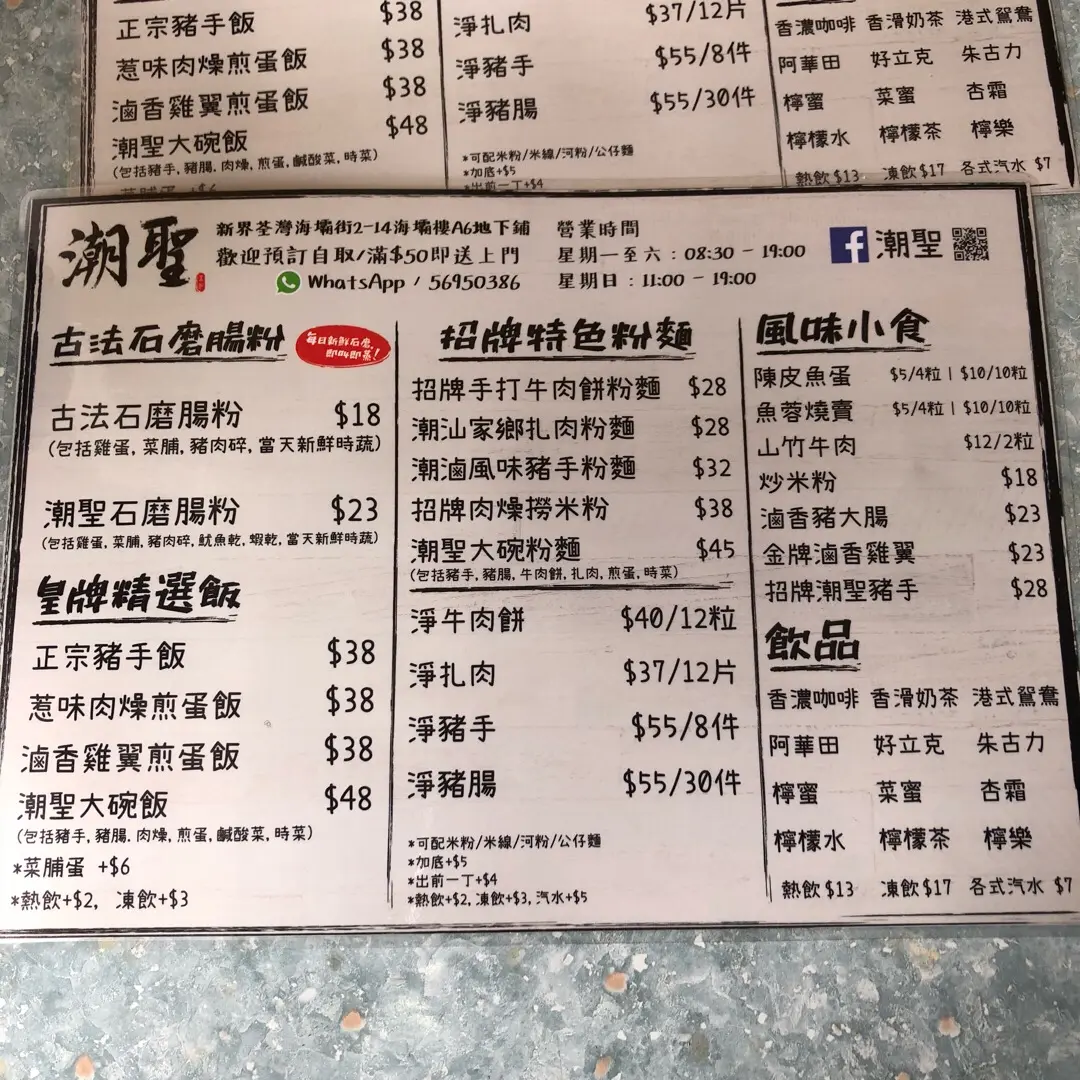 正宗豬手飯 $38
惹味肉燥煎蛋飯 $38
滷香雞翼煎蛋飯 $38
潮聖大碗飯 $48
(包括豬手, 豬腸, 肉燥, 煎蛋, 鹹酸菜, 時菜)
菜脯蛋 +$6
淨扎肉 $37/12片
淨豬手 $55/8件
淨豬腸 $55/30件
*可配米粉/米線/河粉/公仔麵
*加底+$5
*出前一丁+$4
香濃咖啡 香滑奶茶 港式鴛鴦
阿華田 好立克 朱古力
檸蜜 菜蜜 杏霜
檸檬水 檸檬茶 檸樂
熱飲 $13 凍飲 $17 各式汽水 $7
潮聖
新界荃灣海壩街2-14海壩樓A6地下鋪
歡迎預訂自取/滿$50即送上門
WhatsApp / 56950386
營業時間
星期一至六 : 08:30 - 19:00
星期日 : 11:00 - 19:00
潮聖
古法石磨腸粉
每日新鮮石磨,
即叫即蒸!
古法石磨腸粉 $18
(包括雞蛋, 菜脯, 豬肉碎, 當天新鮮時蔬)
潮聖石磨腸粉 $23
(包括雞蛋, 菜脯, 豬肉碎, 魷魚乾, 蝦乾, 當天新鮮時蔬)
皇牌精選飯
正宗豬手飯 $38
惹味肉燥煎蛋飯 $38
滷香雞翼煎蛋飯 $38
潮聖大碗飯 $48
(包括豬手, 豬腸. 肉燥, 煎蛋, 鹹酸菜, 時菜)
*菜脯蛋 +$6
*熱飲+$2, 凍飲+$3
招牌特色粉麵
招牌手打牛肉餅粉麵 $28
潮汕家鄉扎肉粉麵 $28
潮滷風味豬手粉麵 $32
招牌肉燥撈米粉 $38
潮聖大碗粉麵 $45
(包括豬手, 豬腸, 牛肉餅, 扎肉, 煎蛋, 時菜)
淨牛肉餅 $40/12粒
淨扎肉 $37/12片
淨豬手 $55/8件
淨豬腸 $55/30件
*可配米粉/米線/河粉/公仔麵
*加底+$5
*出前一丁+$4
*熱飲+$2, 凍飲+$3, 汽水+$5
風味小食
陳皮魚蛋 $5/4粒 | $10/10粒
魚蓉燒賣 $5/4粒 | $10/10粒
山竹牛肉 $12/2粒
炒米粉 $18
滷香豬大腸 $23
金牌滷香雞翼 $23
招牌潮聖豬手 $28
飲品
香濃咖啡 香滑奶茶 港式鴛鴦
阿華田 好立克 朱古力
檸蜜 菜蜜 杏霜
檸檬水 檸檬茶 檸樂
熱飲 $13 凍飲 $17 各式汽水 $7